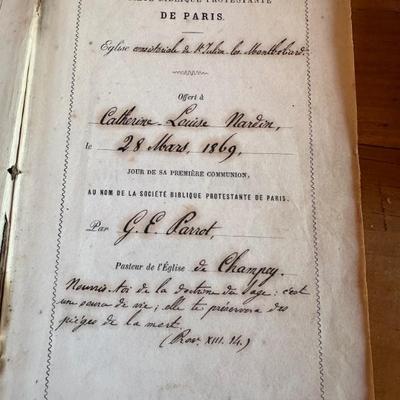 BIBLIQUE PROTESTANTE
DE PARIS.
Eglise consistoriale de St Julien les Montbéliard
Offert à
Catherine-Louise Nardin,
le 28 Mars, 1869,
JOUR DE SA PREMIÈRE COMMUNION,
AU NOM DE LA SOCIÉTÉ BIBLIQUE PROTESTANTE DE PARIS.
Par G. E. Parrot,
Pasteur de l'Église de Champey.
Nourris-toi de la doctrine du sage : c'est
une source de vie ; elle te préservera des
pièges de la mort.
(Prov. XIII. 14.)